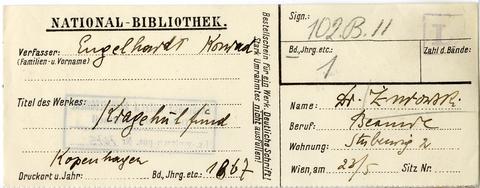 NATIONAL-BIBLIOTHEK.
Verfasser: Engelhardt Konrad
(Familien- u. Vorname)
Titel des Werkes: Kragehul fund
Kopenhagen 1867
Druckort u. Jahr: Bd., Jhrg. etc.:
Bestellschein für ein Werk. Deutliche Schrift!
Stark Umrahmtes nicht ausfüllen!
Sign.: 102.B.11
Bd., Jhrg. etc.: 1
Zahl d. Bände:
Name: Dr.
Beruf: Beamter
Wohnung:
Wien, am 22/5 Sitz Nr.